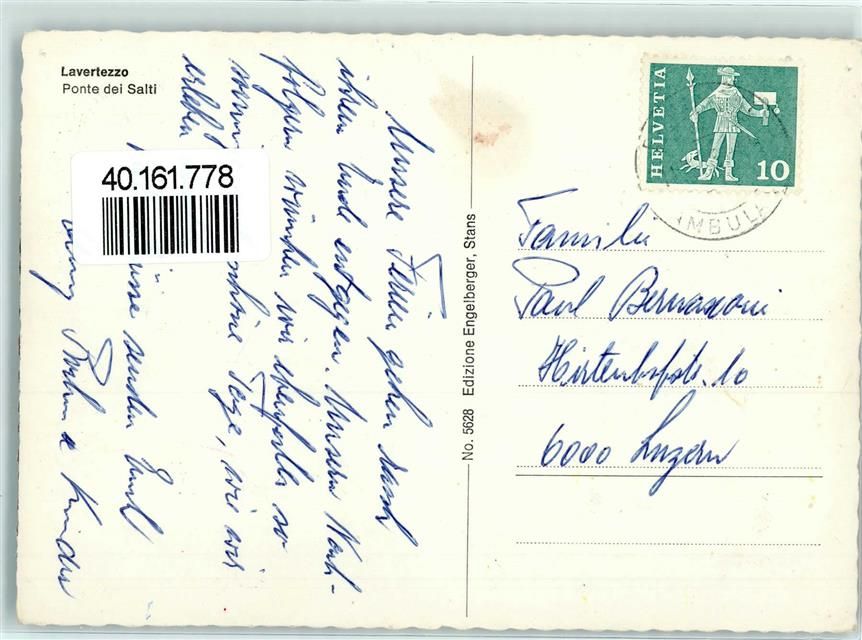 Lavertezzo
Ponte dei Salti
40.161.778
Unsere Ferien gehen rasch
ihrem Ende entgegen. Unsern Nach-
folgern wünschen wir ebenfalls so
schöne Tage, wie wir
erleben
senden Emil
Kinder
No. 5628 Edizione Engelberger, Stans
HELVETIA
10
AMBULA
Familie
Paul Bernasconi
Hirtenhofstr. 10
6000 Luzern